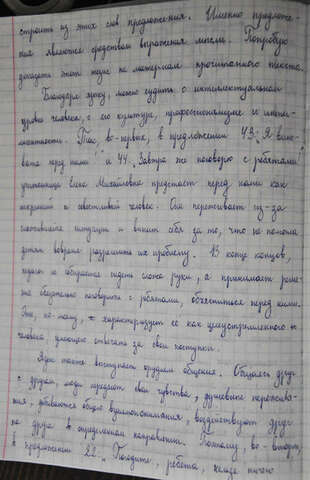 строить из этих слов предложения. Именно предложе-
ния является средством выражения мысли. Попробую
доказать этот тезис на материале прочитанного текста.
Благодаря языку, можно судить о интеллектуальном
уровне человека, о его культуре, профессионализме и
Так, во-первых, в предложении 43: "Я вино-
вата перед вами" и 44: "Завтра же поговорю с ребятами"
учительница Елена Михайловна предстает перед нами как
и совестливый человек. Она переживает из-за
ситуации и винит себя за то, что не помогла
детям вовремя разрешить их проблему. В конце концов,
педагог не собирается сидеть сложа руки, а принимает реше-
ние обязательно поговорить с ребятами, объясниться перед ними.
Это, по-моему, характеризует ее как целеустремленного
человека, умеющего отвечать за свои поступки.
Язык также выступает орудием общения. Общаясь друг
с другом, люди передают свои чувства, душевные пережива-
ния, добиваются общего взаимопонимания, воздействуют друг
на друга в определенном направлении. Поэтому, во-вторых,
в предложении 22: "Погодите, ребята, нельзя ничего